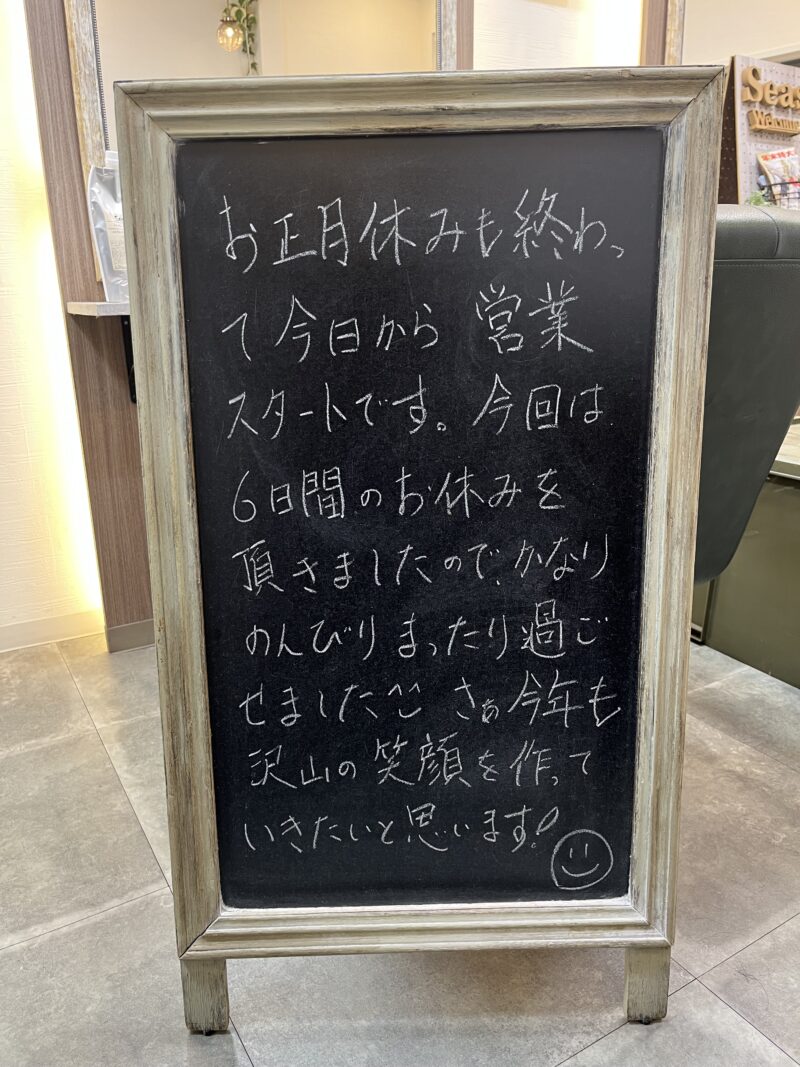 お正月休みも終わっ
て今日から 営業
スタートです。今回は
6日間のお休みを
頂きましたので、かなり
のんびりまったり過ご
せました^^ さぁ今年も
沢山の笑顔を作って
いきたいと思います!
Seas
Welcom